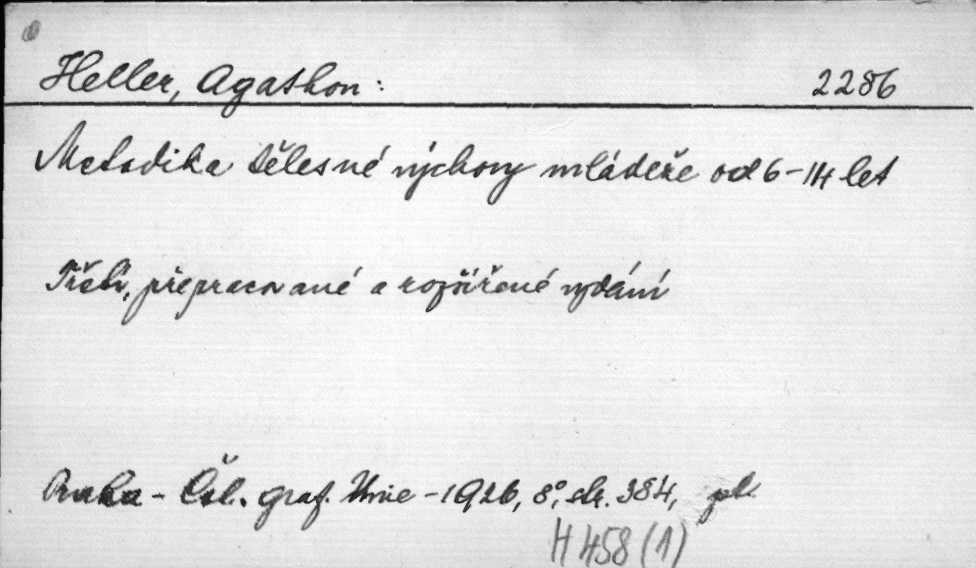 Heller, Agathon: 2286
Metodika tělesné výchovy mládeže od 6-14 let
Třetí, přepracované a rozšířené vydání
Praha - Čsl. graf. Unie - 1926, 8°, str. 384, pl.
H 458 (1)